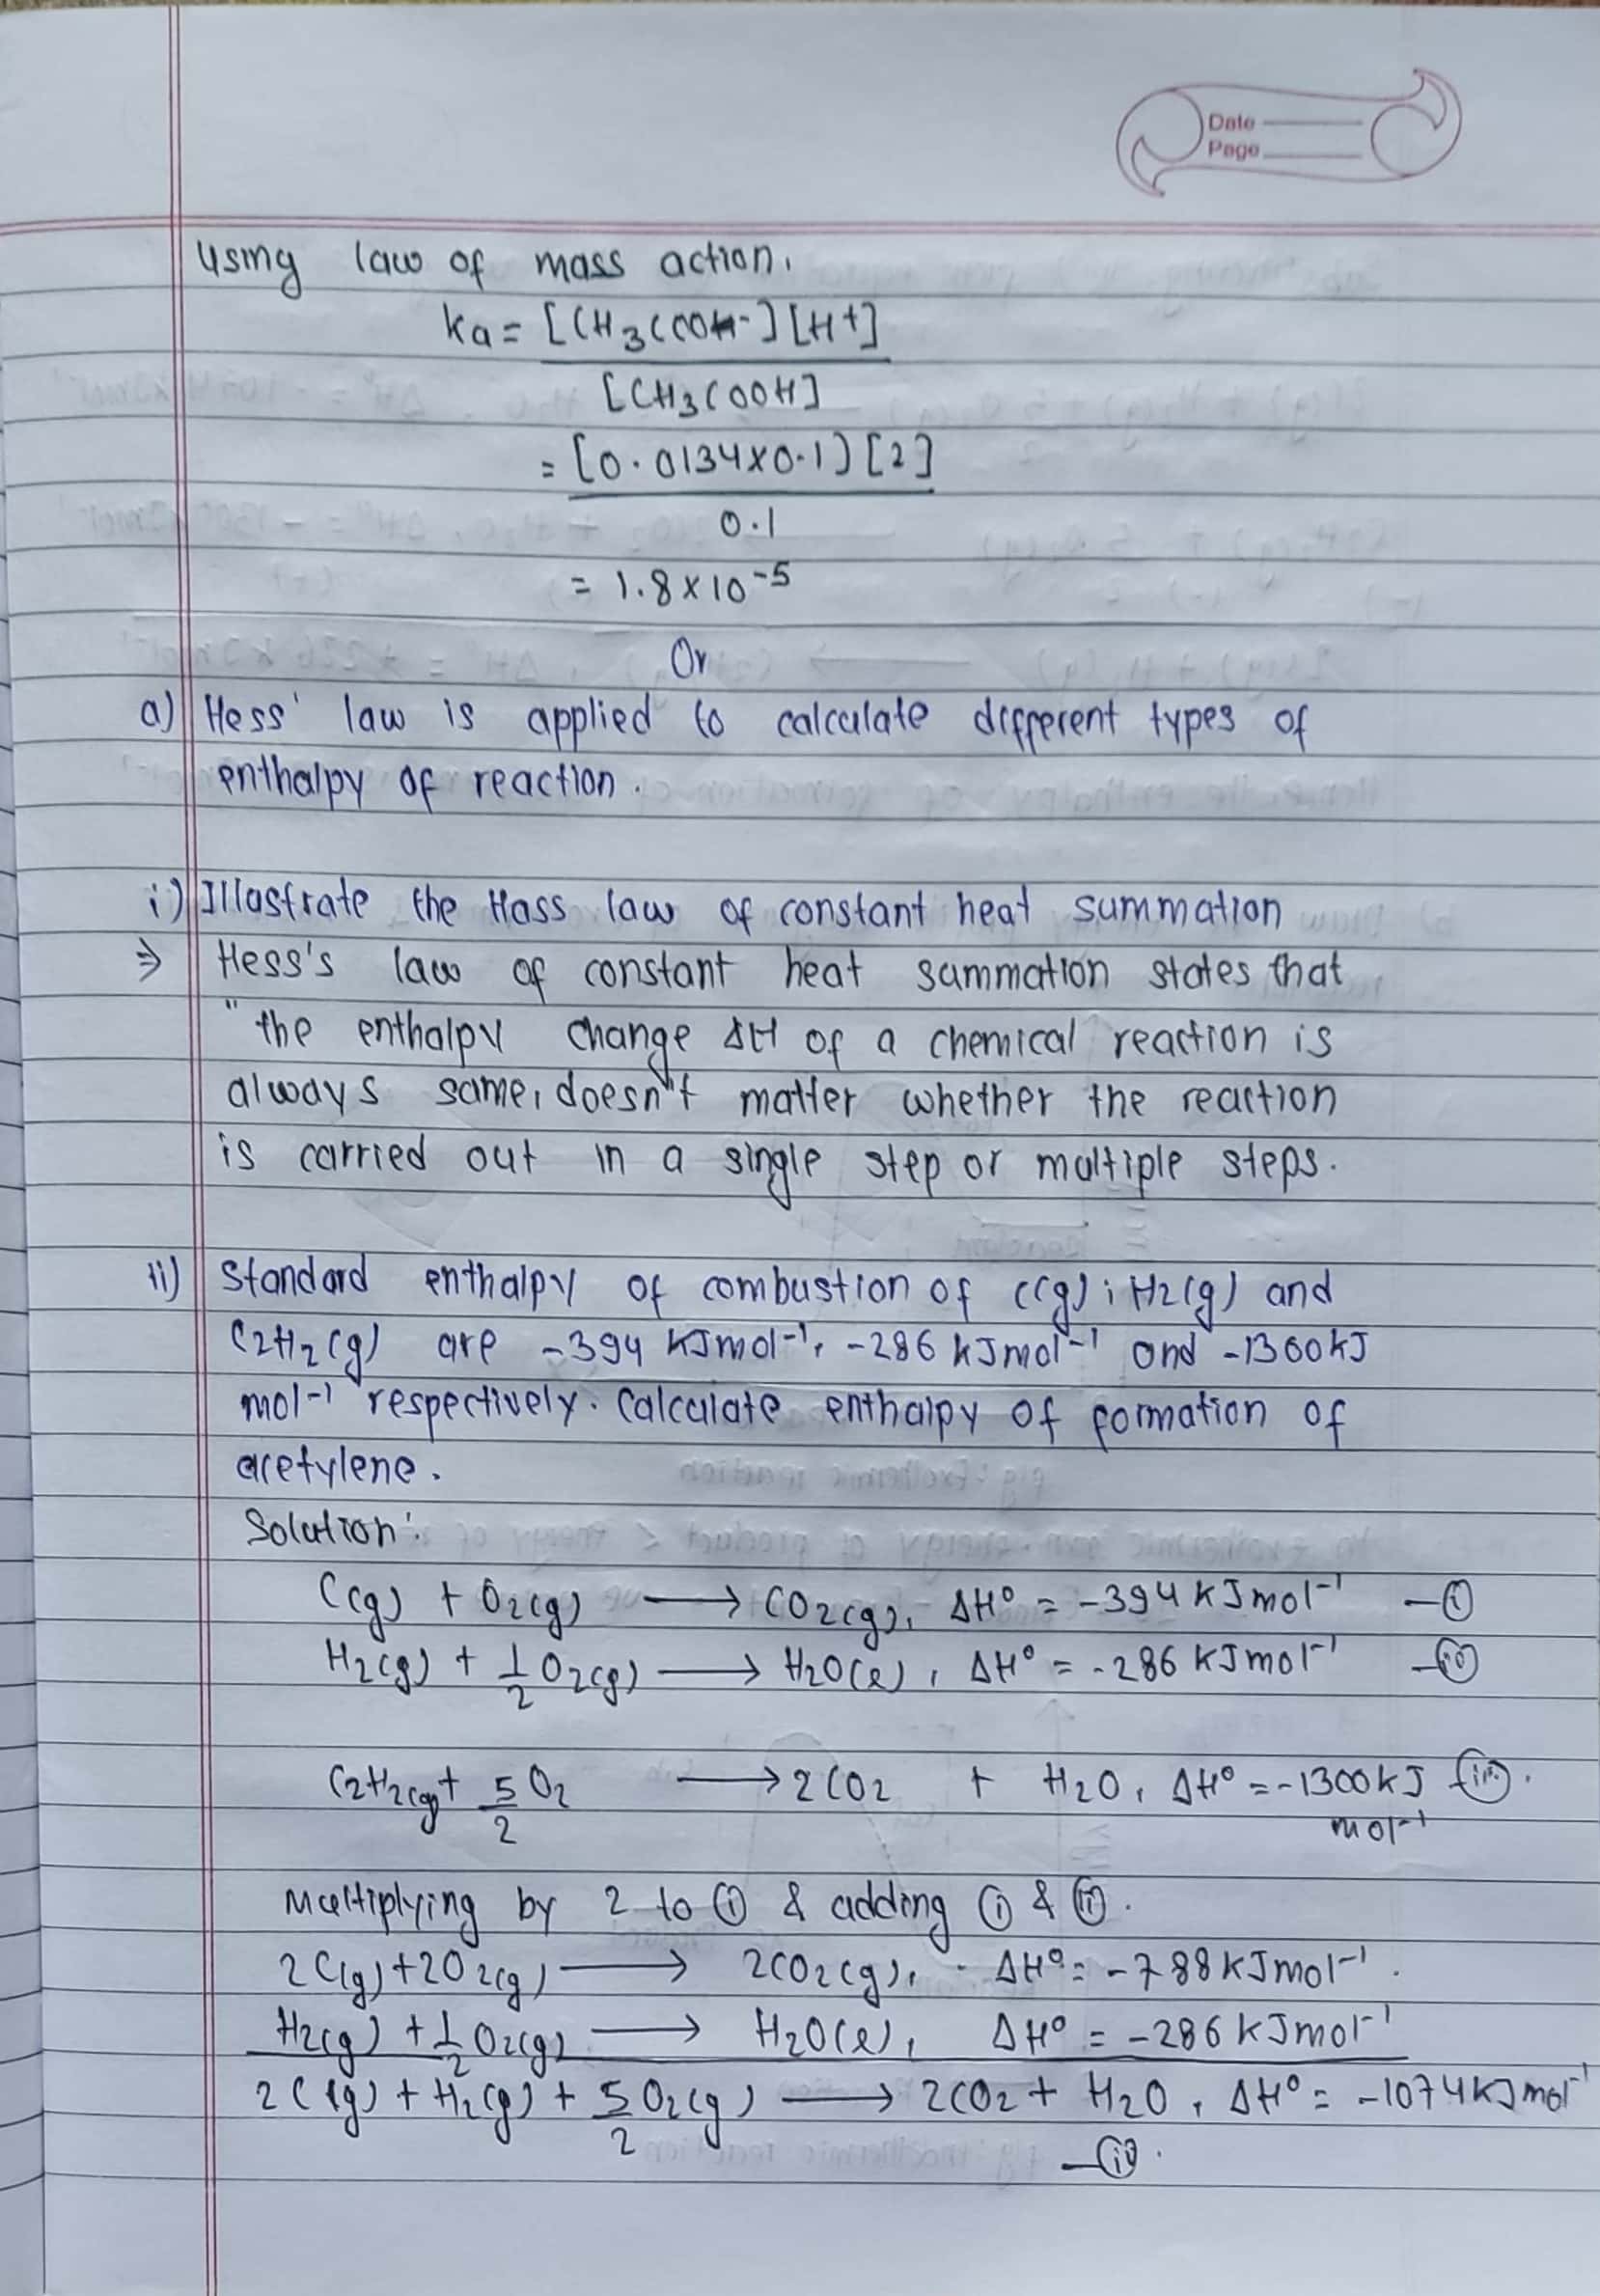 Date
Page
Using law of mass action.
Ka = [CH3COO-][H+]
[CH3COOH]
= [0.0134x0.1][2]
0.1
= 1.8 x 10-5
Or
a) Hess' law is applied to calculate different types of
enthalpy of reaction.
i) Illustrate the Hass law of constant heat summation
⇒ Hess's law of constant heat summation states that
"the enthalpy change ΔH of a chemical reaction is
always same, doesn't matter whether the reaction
is carried out in a single step or multiple steps.
ii) Standard enthalpy of combustion of C(g), H2(g) and
C2H2(g) are -394 KJmol-1, -286 kJmol-1 and -1300kJ
mol-1 respectively. Calculate enthalpy of formation of
acetylene.
Solution:
C(g) + O2(g) ⟶ CO2(g), ΔH° = -394 KJmol-1 —(i)
H2(g) + 1/2 O2(g) ⟶ H2O(l), ΔH° = -286 KJmol-1 —(ii)
C2H2(g) + 5/2 O2 ⟶ 2CO2 + H2O, ΔH° = -1300kJ —(iii).
mol-1
Multiplying by 2 to (i) & adding (i) & (ii).
2C(g)+2O2(g) ⟶ 2CO2(g), ΔH° = -788KJmol-1.
H2(g) + 1/2 O2(g) ⟶ H2O(l), ΔH° = -286 KJmol-1
2C(g) + H2(g) + 5/2 O2(g) ⟶ 2CO2 + H2O, ΔH° = -1074KJmol-1
—(iv).